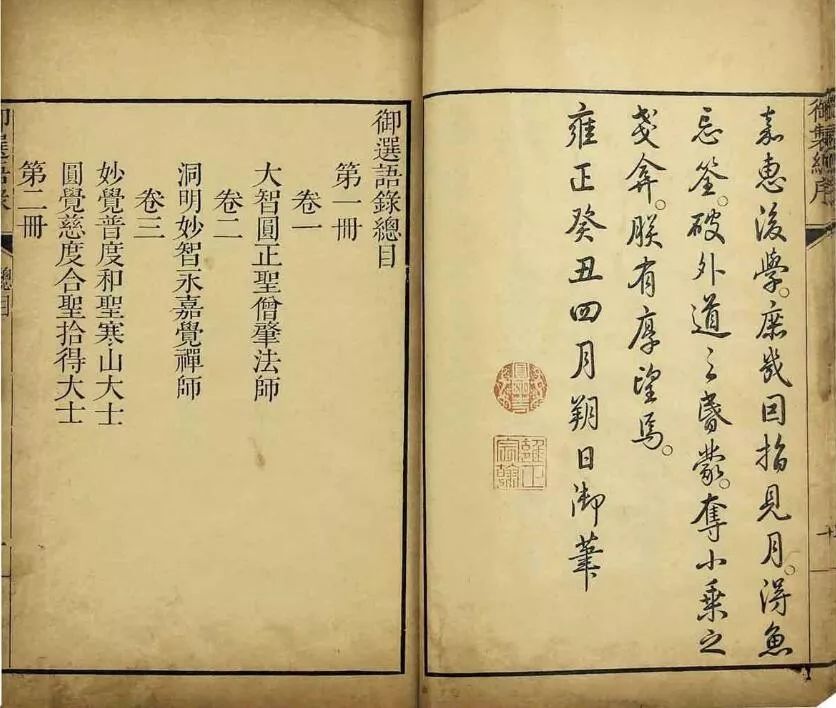 御製總序
嘉惠後學。庶幾因指見月。得魚
忘筌。破外道之昏蒙。奪小乘之
戔弇。朕有厚望焉。
雍正癸丑四月朔日御筆
雍正宸翰
御選語錄總目
第一冊
卷一
大智圓正聖僧肇法師
卷二
洞明妙智永嘉覺禪師
卷三
妙覺普度和聖寒山大士
圓覺慈度合聖拾得大士
第二冊
御選語錄
總目
一